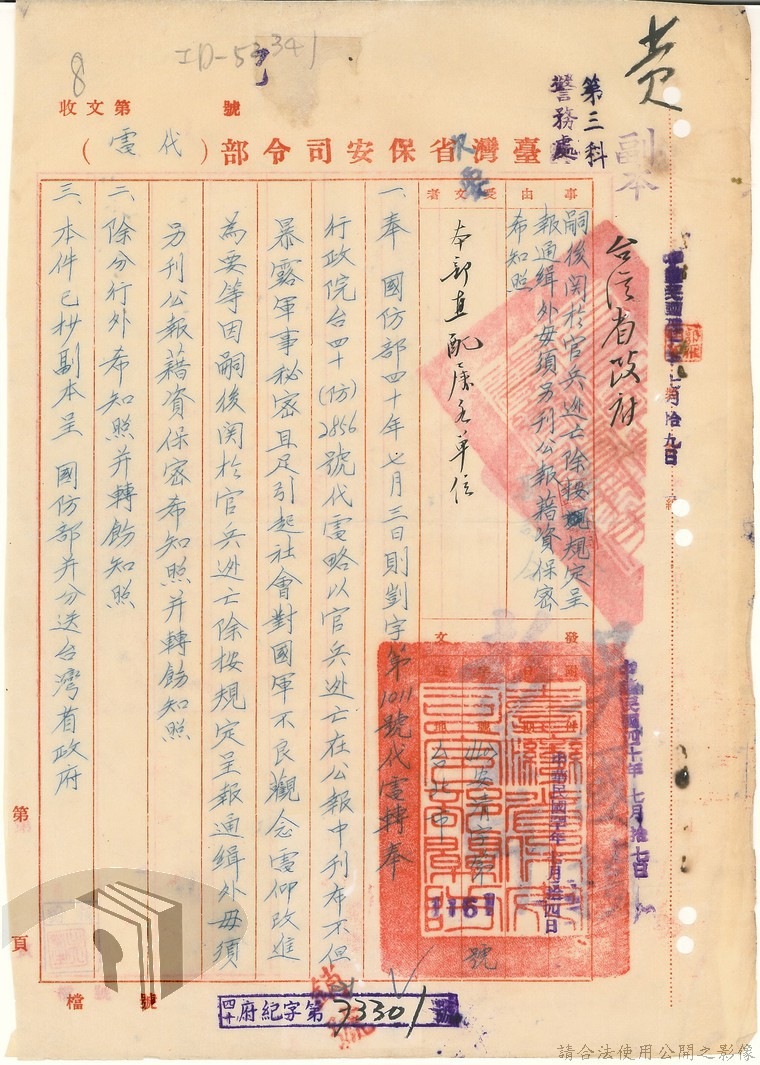 ID-53341
8
收文第　號
臺灣省保安司令部（代電）
第三科
警務處
副本
事由
嗣後関於官兵逃亡除按規定呈
報通緝外毋須另刊公報藉資保密
希知照
受文者
台湾省政府
本部直配屬各單位
發文
中華民國四十年七月拾四日
(40)安清字第1161號
台北市
一、奉　國防部四十年七月三日則剴字第1011號代電轉奉
行政院台四十(防)2856號代電略以官兵逃亡在公報中刊布不但
暴露軍事秘密且足引起社會對國軍不良觀念電仰改進
為要等因嗣後関於官兵逃亡除按規定呈報通緝外毋須
另刊公報藉資保密希知照并轉飭知照
二、除分行外希知照并轉飭知照
三、本件已抄副本呈　國防部并分送台灣省政府
中華民國四十年七月拾七日
七月拾九日
第　頁
檔　號
四十府紀字第73301號
請合法使用公開之影像